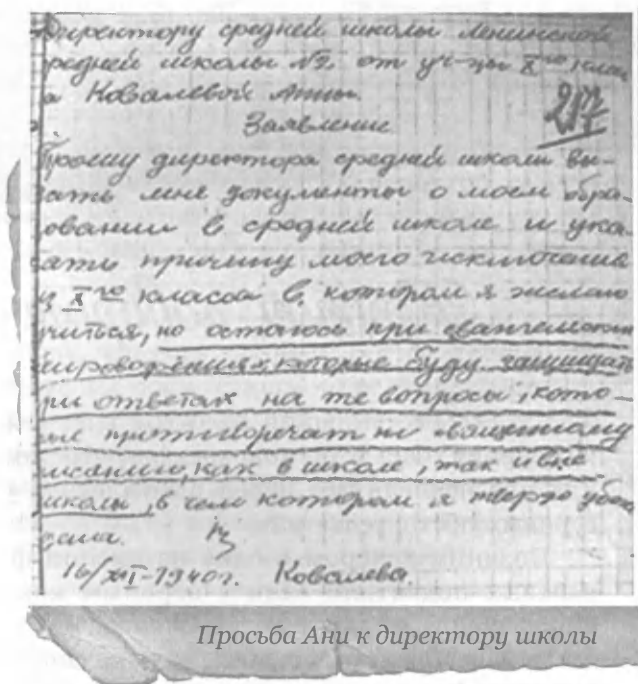 Директору средней школы Ленинской
редней школы №2 от уч-цы X го клас
а Ковалевой Анны.
Заявление
Прошу директора средней школы вы-
дать мне документы о моем обра-
зовании в средней школе и ука-
зать причину моего исключения
из X го класса в котором я желаю
учиться, но остаюсь при евангельском
мировоззрении, которые буду защищать
при ответах на те вопросы, кото-
рые противоречат по священному
писанию, как в школе, так и вне
школы, в чем котором я твердо убеж
дена.
16/XII-1940г. Ковалева.
Просьба Ани к директору школы